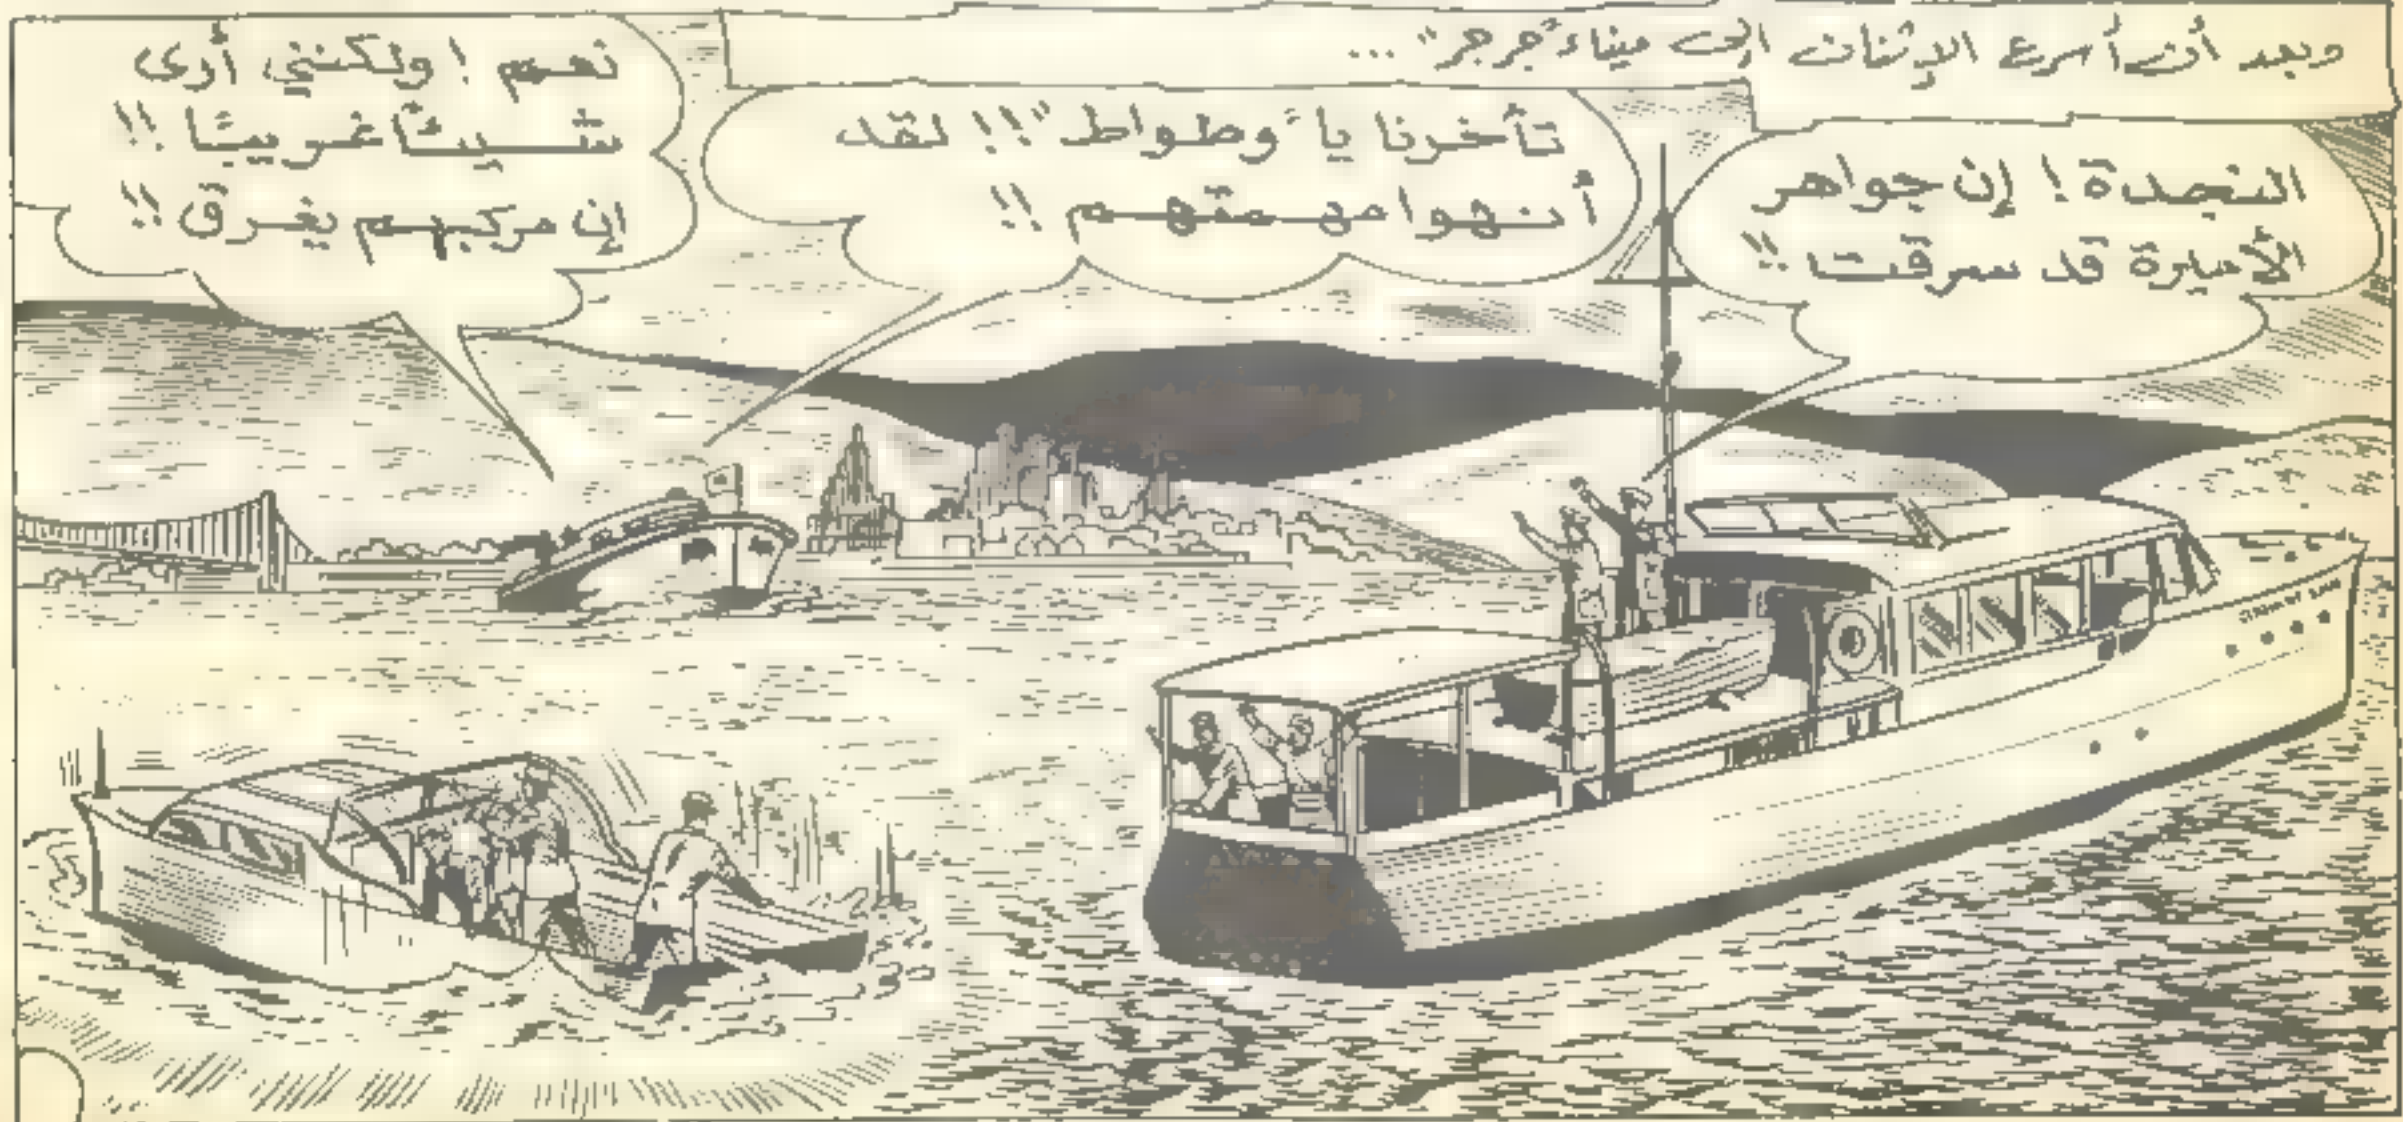 وبعد أن أسرع الإثنان إلى ميناء "جرجر" ...
النجدة ! إن جواهر
الأميرة قد سرقت !!
تأخرنا يا "وطواط" !! لقد
أنهوا مهمتهم !!
نعم ! ولكنني أرى
شيئًا غريبًا !!
إن مركبهم يغرق !!